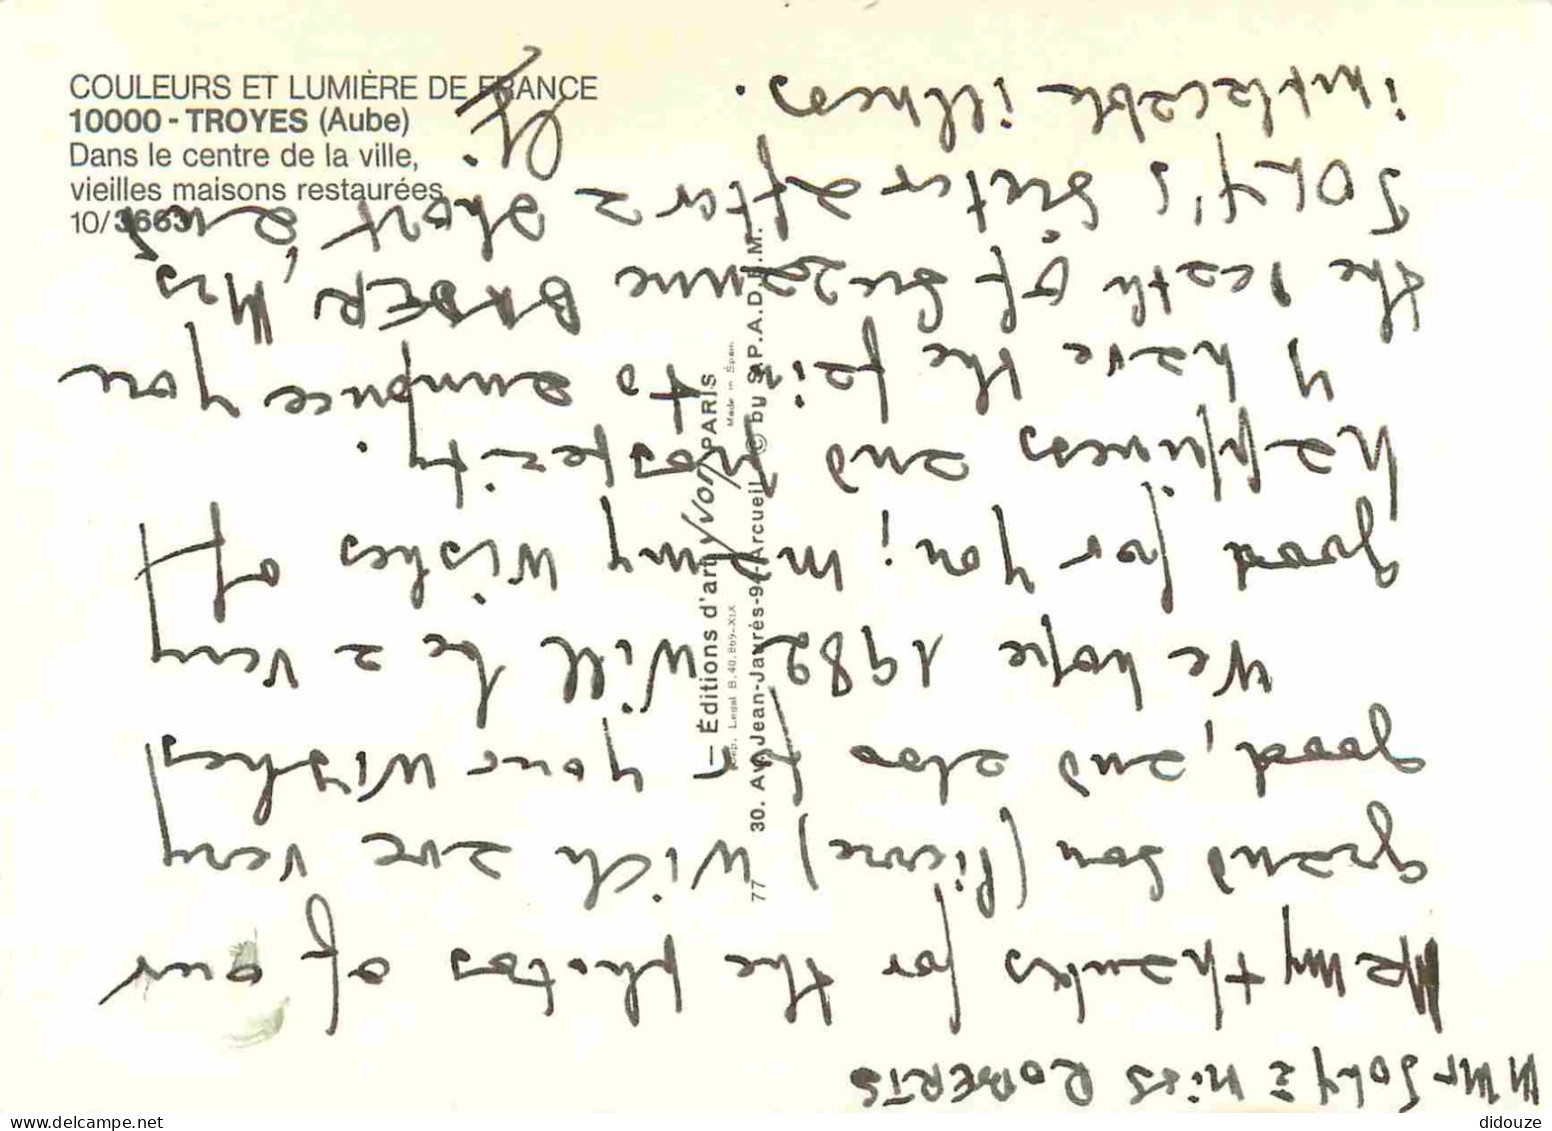 COULEURS ET LUMIÈRE DE FRANCE
10000 - TROYES (Aube)
Dans le centre de la ville,
vieilles maisons restaurées
10/3663
77 — Éditions d'art YVON PARIS
Made in Spain
30. Av. Jean-Jaurès-94-Arcueil © by S.P.A.D.E.M.
Legal B.40.869-XIX
Mr Soly à Miss ROBERTS
Many thanks for the photos of our
grand son (Pierre) wich are very
good, and also for your wishes
We hope 1982 will be a very
good for you; in my wishes of
happiness and prosperity.
I have the to announce you
the death of Suzanne BADER, Mrs
Soly's sister after a short and
implacable illness.
didouze
delcampe.net